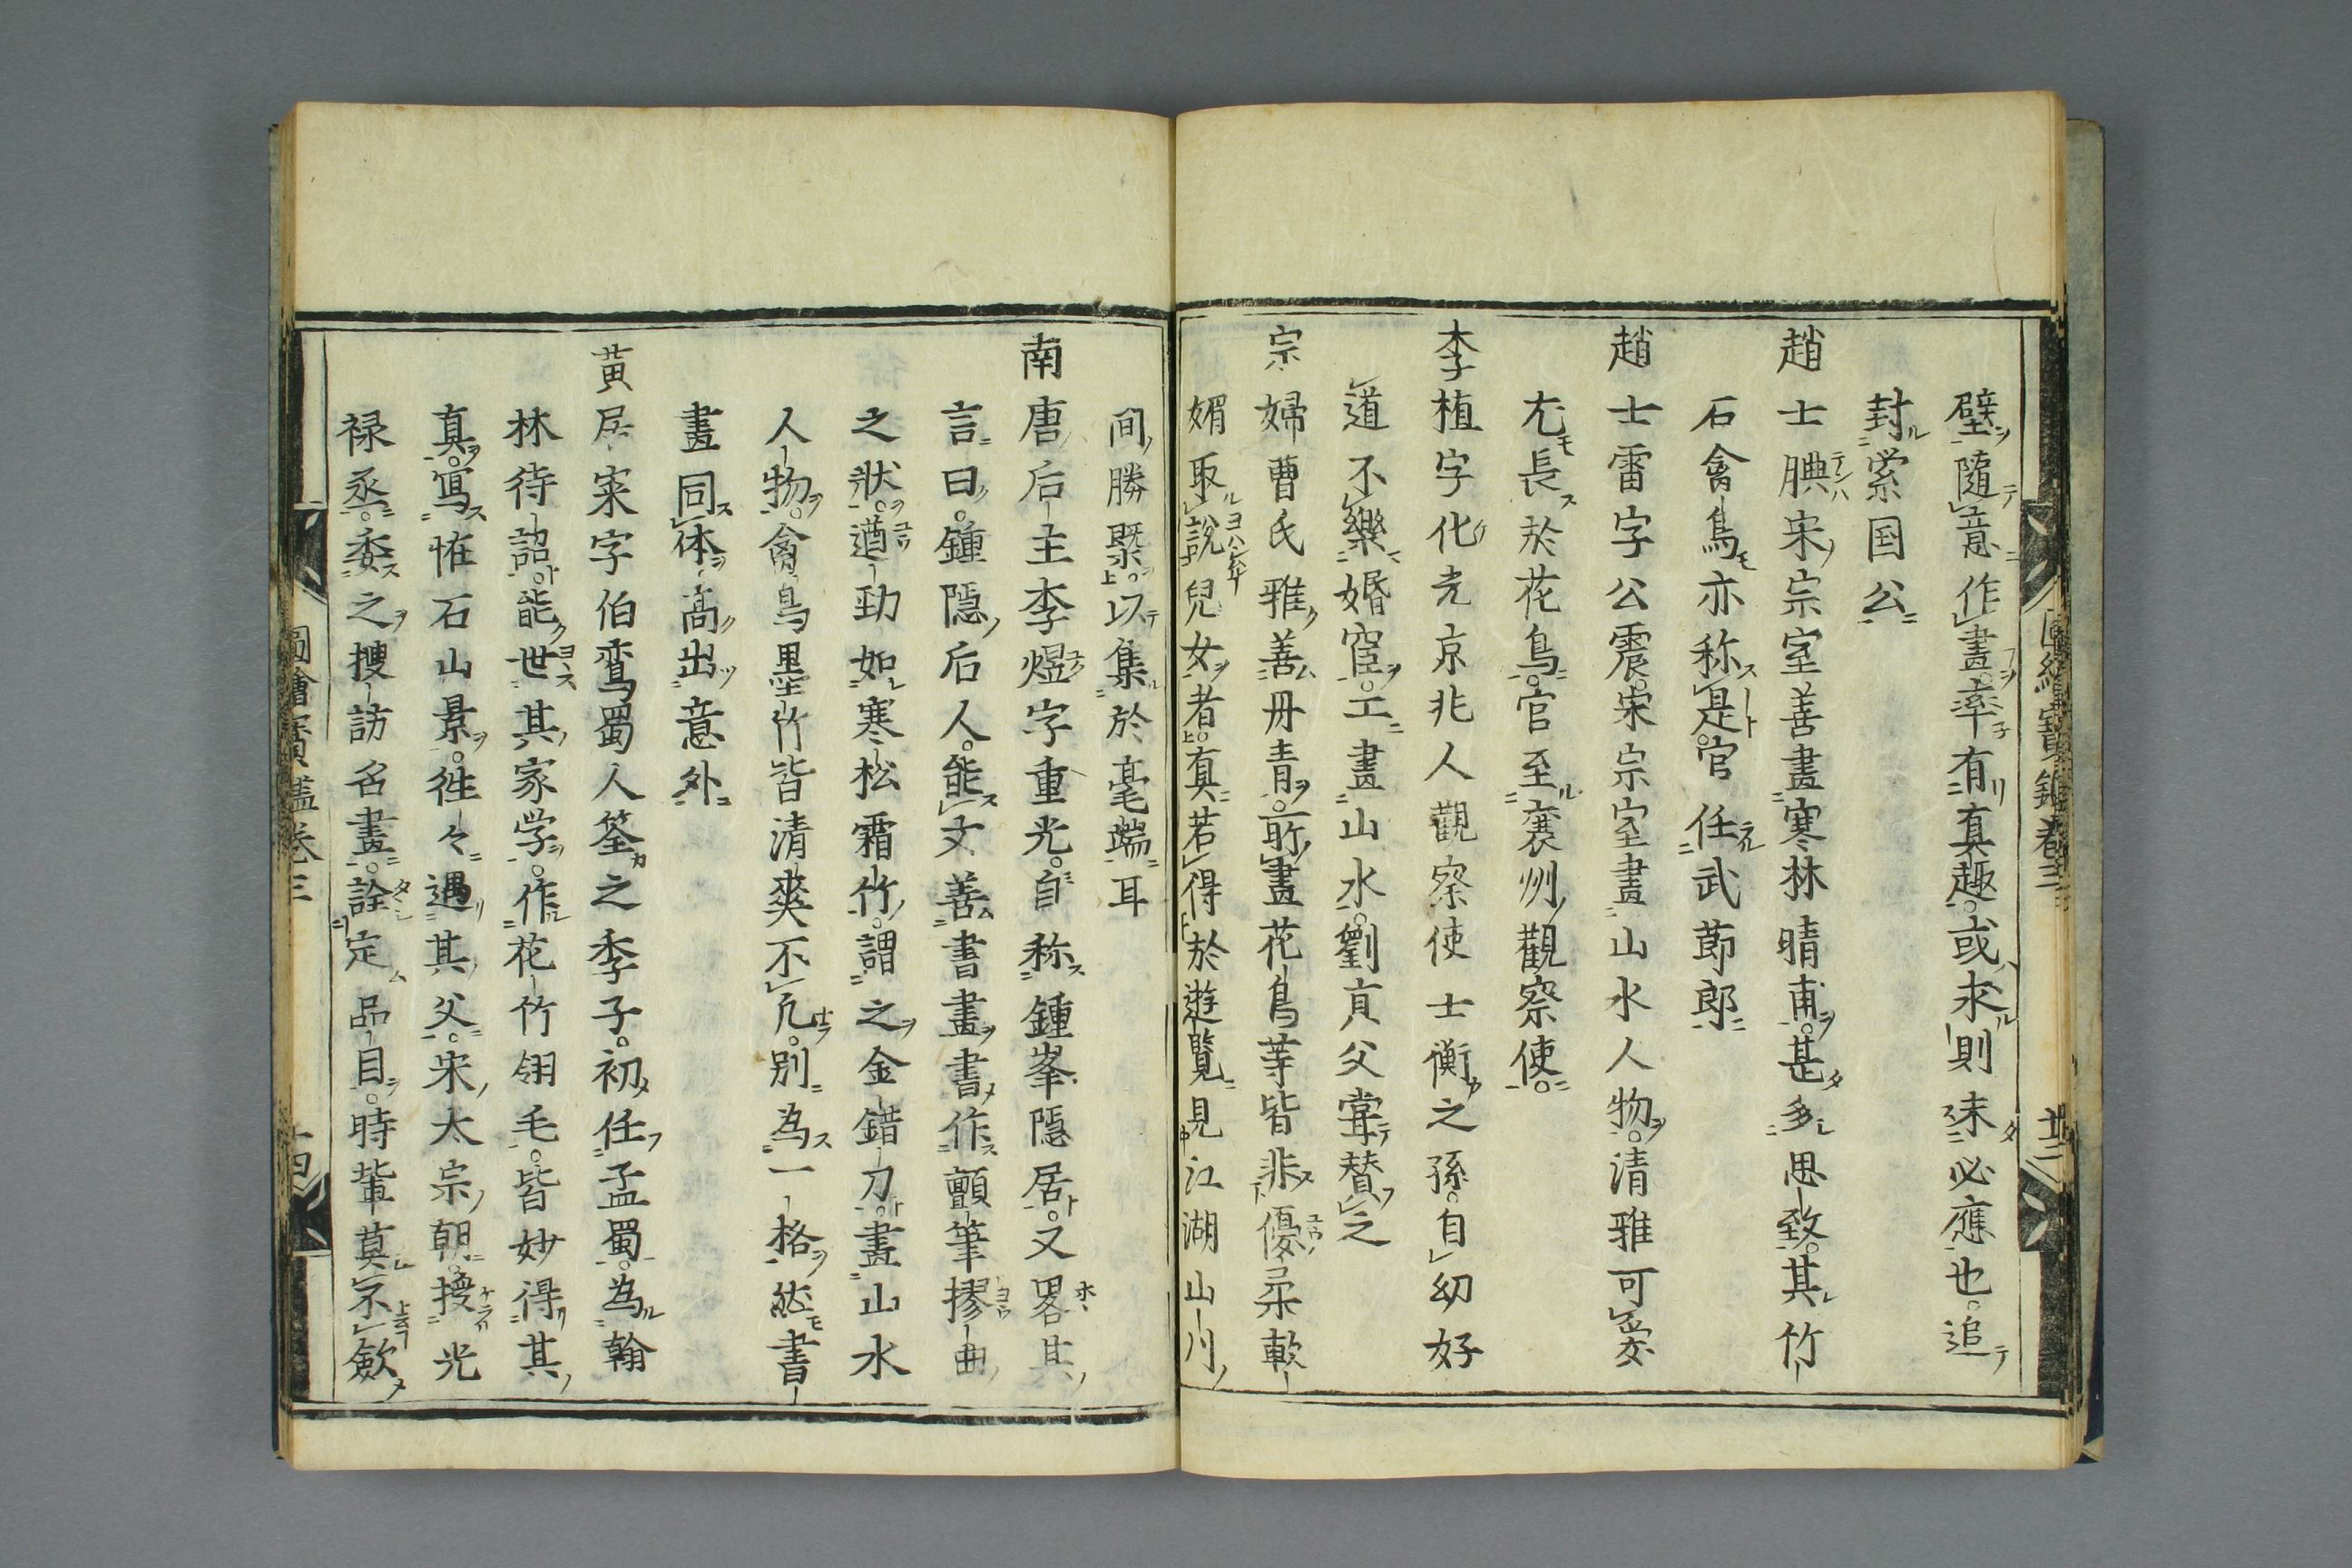 壁隨意作畫率有真趣或求則未必應也追
封崇国公
趙士腆宋宗室善畫寒林晴甫甚多思致其竹
石禽鳥亦称是官任武節郎
趙士雷字公震宋宗室畫山水人物清雅可愛
尤長於花鳥官至襄州觀察使
李植字化光京兆人觀察使士衡之孫自幼好
道不樂婚宦工畫山水劉貢父甞替之
宗婦曹氏雅善丹青所畫花鳥等皆非優柔軟
媚取説兒女者真若得於遊覧見江湖山川
間勝槩以集於毫端耳
南唐后主李煜字重光自称鍾峯隠居又畧其
言曰鍾隠后人能文善書畫書作顫筆摎曲
之狀遒勁如寒松霜竹謂之金錯刀畫山水
人物禽鳥墨竹皆清爽不凢別為一格然書
畫同体高出意外
黃居寀字伯鸞蜀人筌之季子初任孟蜀為翰
林待詔能世其家学作花竹翎毛皆妙得其
真寫恠石山景徃々過其父宋太宗朝授光
禄丞委之搜訪名畫詮定品目時軰莫不斂
圖繪寳鑑卷三
十四